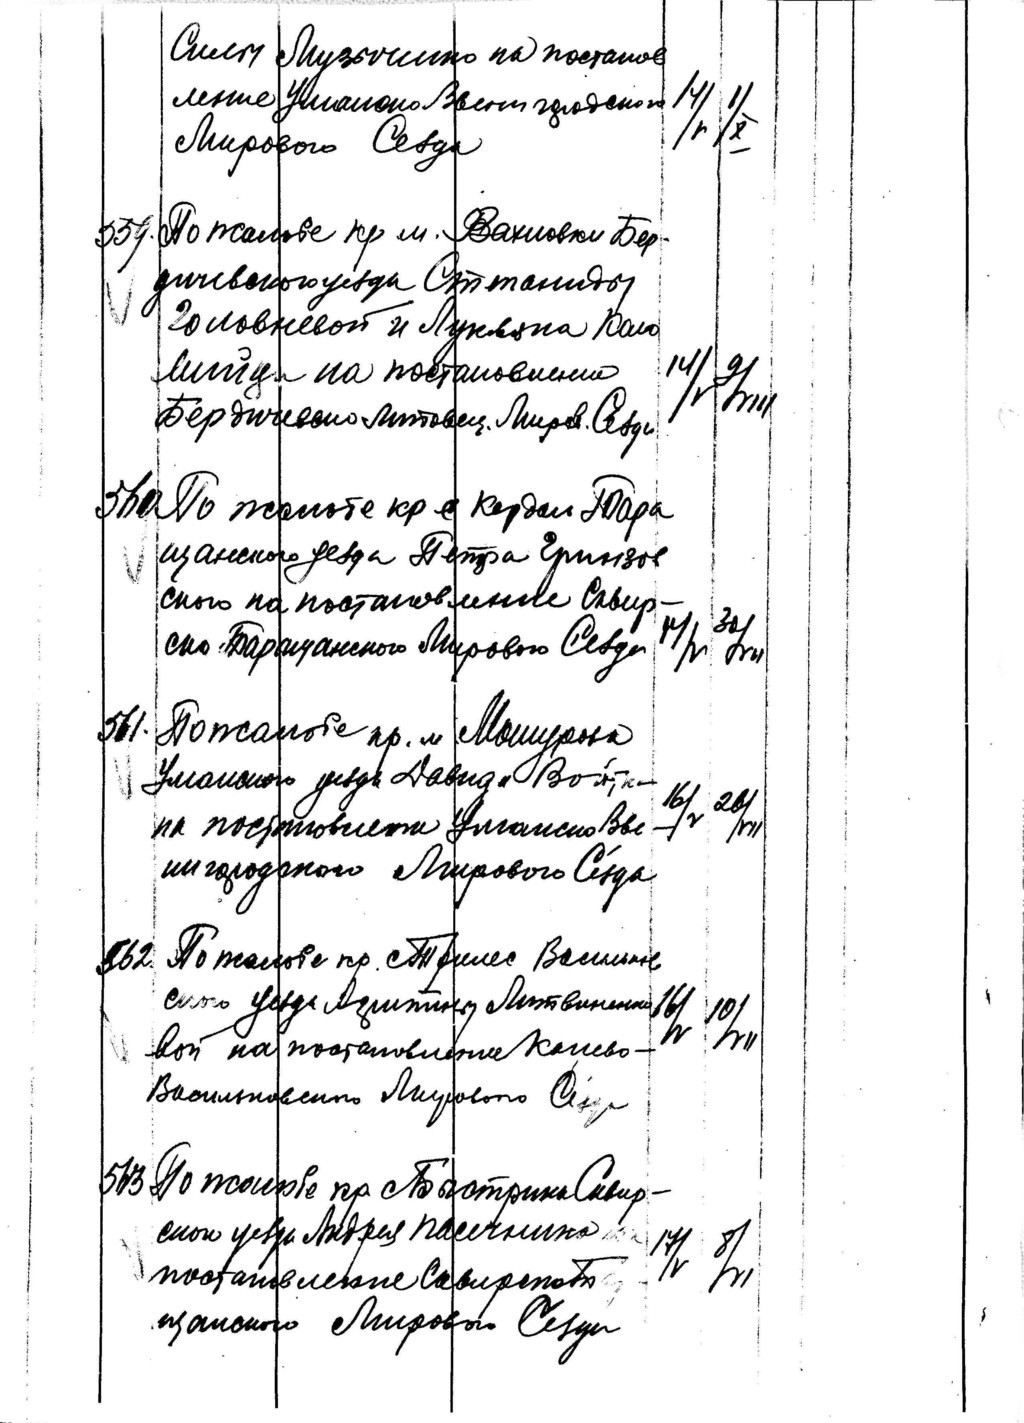 Силы Музычино на постанов
ление Уманско Звенигородского 14/V 1/X
Мирового Сезда
559. По жалобе кр м. Вахновки Бер-
дичевского уезда Степаниды
Головневой и Лукьяна Коло
мийца на постановление 14/V 9/VIII
Бердичевско Липовец. Миров. Сезда
560 По жалобе кр с Кердан Тара
щанского уезда Петра Гринзов
ского на постановление Сквир-
ско Таращанского Мирового Сезда 14/V 30/VII
561. По жалобе кр. м Мошурова
Уманского уезда Давида
на постановление Уманско Зве- 16/V 20/VII
нигородского Мирового Сезда
562. По жалобе кр. с Трилес Васильков
ского уезда Литвиненко
вой на постановление Канево- 16/V 10/VII
Васильковского Мирового Сезда
563 По жалобе кр с Быстрика Сквир-
ского уезда Андрея Пасечника на
постановление Сквирско Т 17/V 8/VI
щанского Мирового Сезда